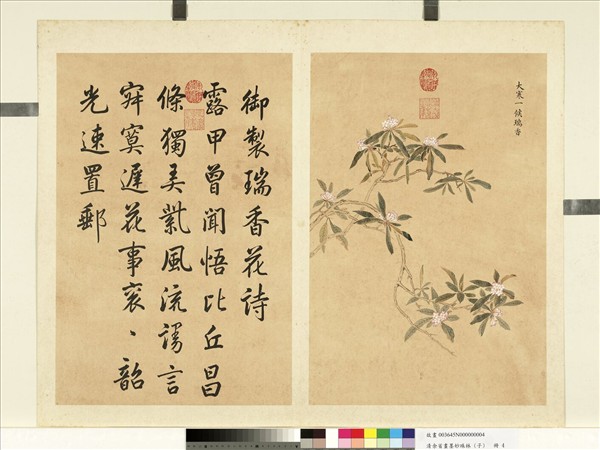 大寒一候瑞香
御製瑞香花詩
露甲曾聞悟比丘昌
條獨美紫風流謾言
寂寞遲花事衮〻韶
光速置郵
故畫 003645N000000004
清余省畫墨妙珠林（子） 冊 4